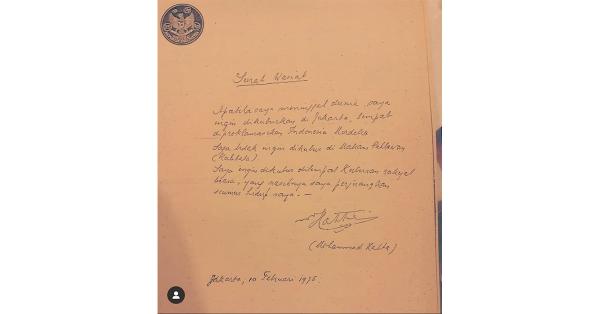 Surat Wasiat
Apabila saya meninggal dunia, saya
ingin dikuburkan di Jakarta, tempat
diproklamasikan Indonesia Merdeka
Saya tidak ingin dikubur di Makam Pahlawan
(Kalibata)
Saya ingin dikubur ditempat Kuburan rakyat
biasa, yang nasibnya saya perjuangkan
seumur hidup saya. —
Hatta
(Mohammad Hatta)
Jakarta, 10 Februari 1975.